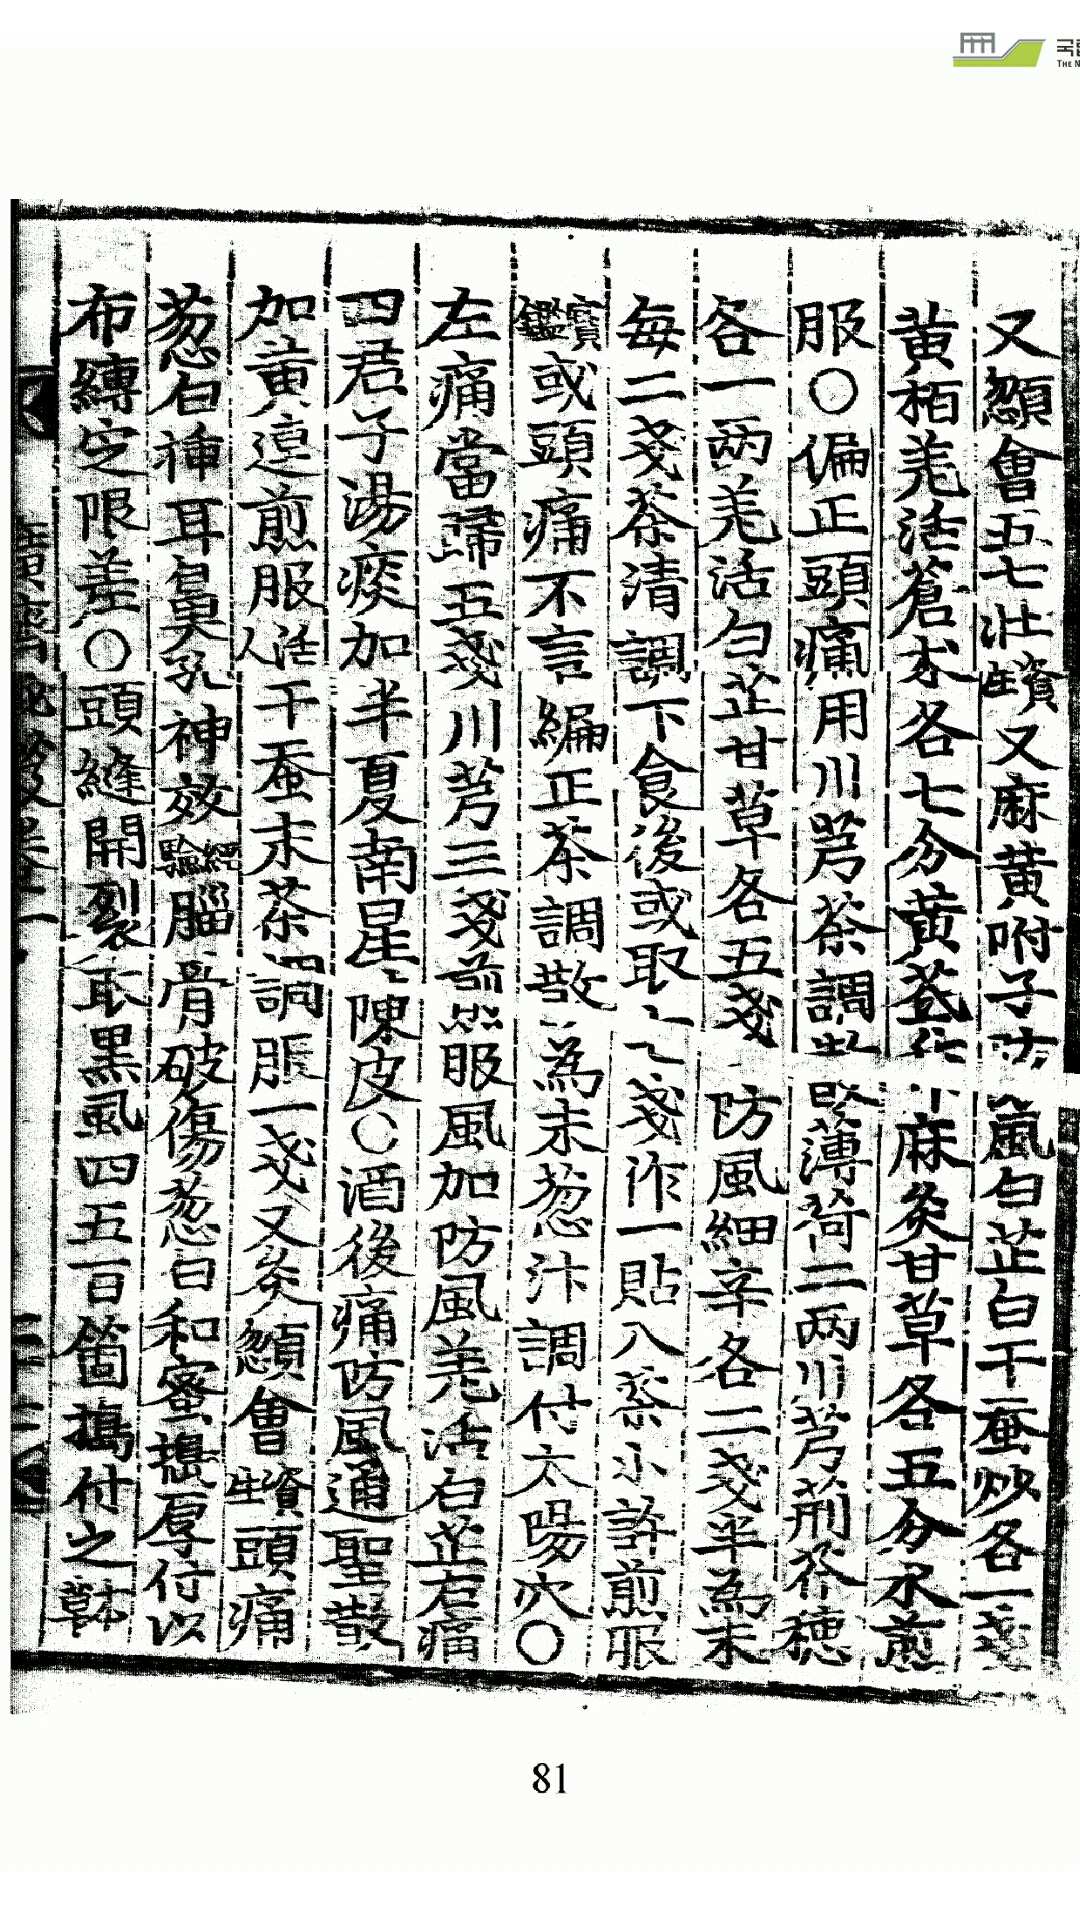 국립
THE N
又顖會五七壯資生又麻黃附子防風白芷白干蚕炒各一戔
黃栢羌活蒼朮各七分黃芪升麻炙甘草各五分水煎
服○偏正頭痛用川芎茶調散薄荷二两川芎荊芥穗
各一兩羌活白芷甘草各五戔防風細辛各二戔半為末
每二戔茶清調下食後或取七戔作一貼入茶小許煎服
寶鑑或頭痛不言編正茶調散為末葱汁調付太陽穴○
左痛當歸五戔川芎三戔煎服風加防風羌活白芷右痛
四君子湯痰加半夏南星陳皮○酒後痛防風通聖散
加黃連煎服活人干蚕末茶調服一戔又炙顖會資生頭痛
葱白揷耳鼻孔神效經驗腦骨破傷葱白和蜜搗厚付以
布縛定限差○頭縫開裂取黑虱四五百箇搗付之
81